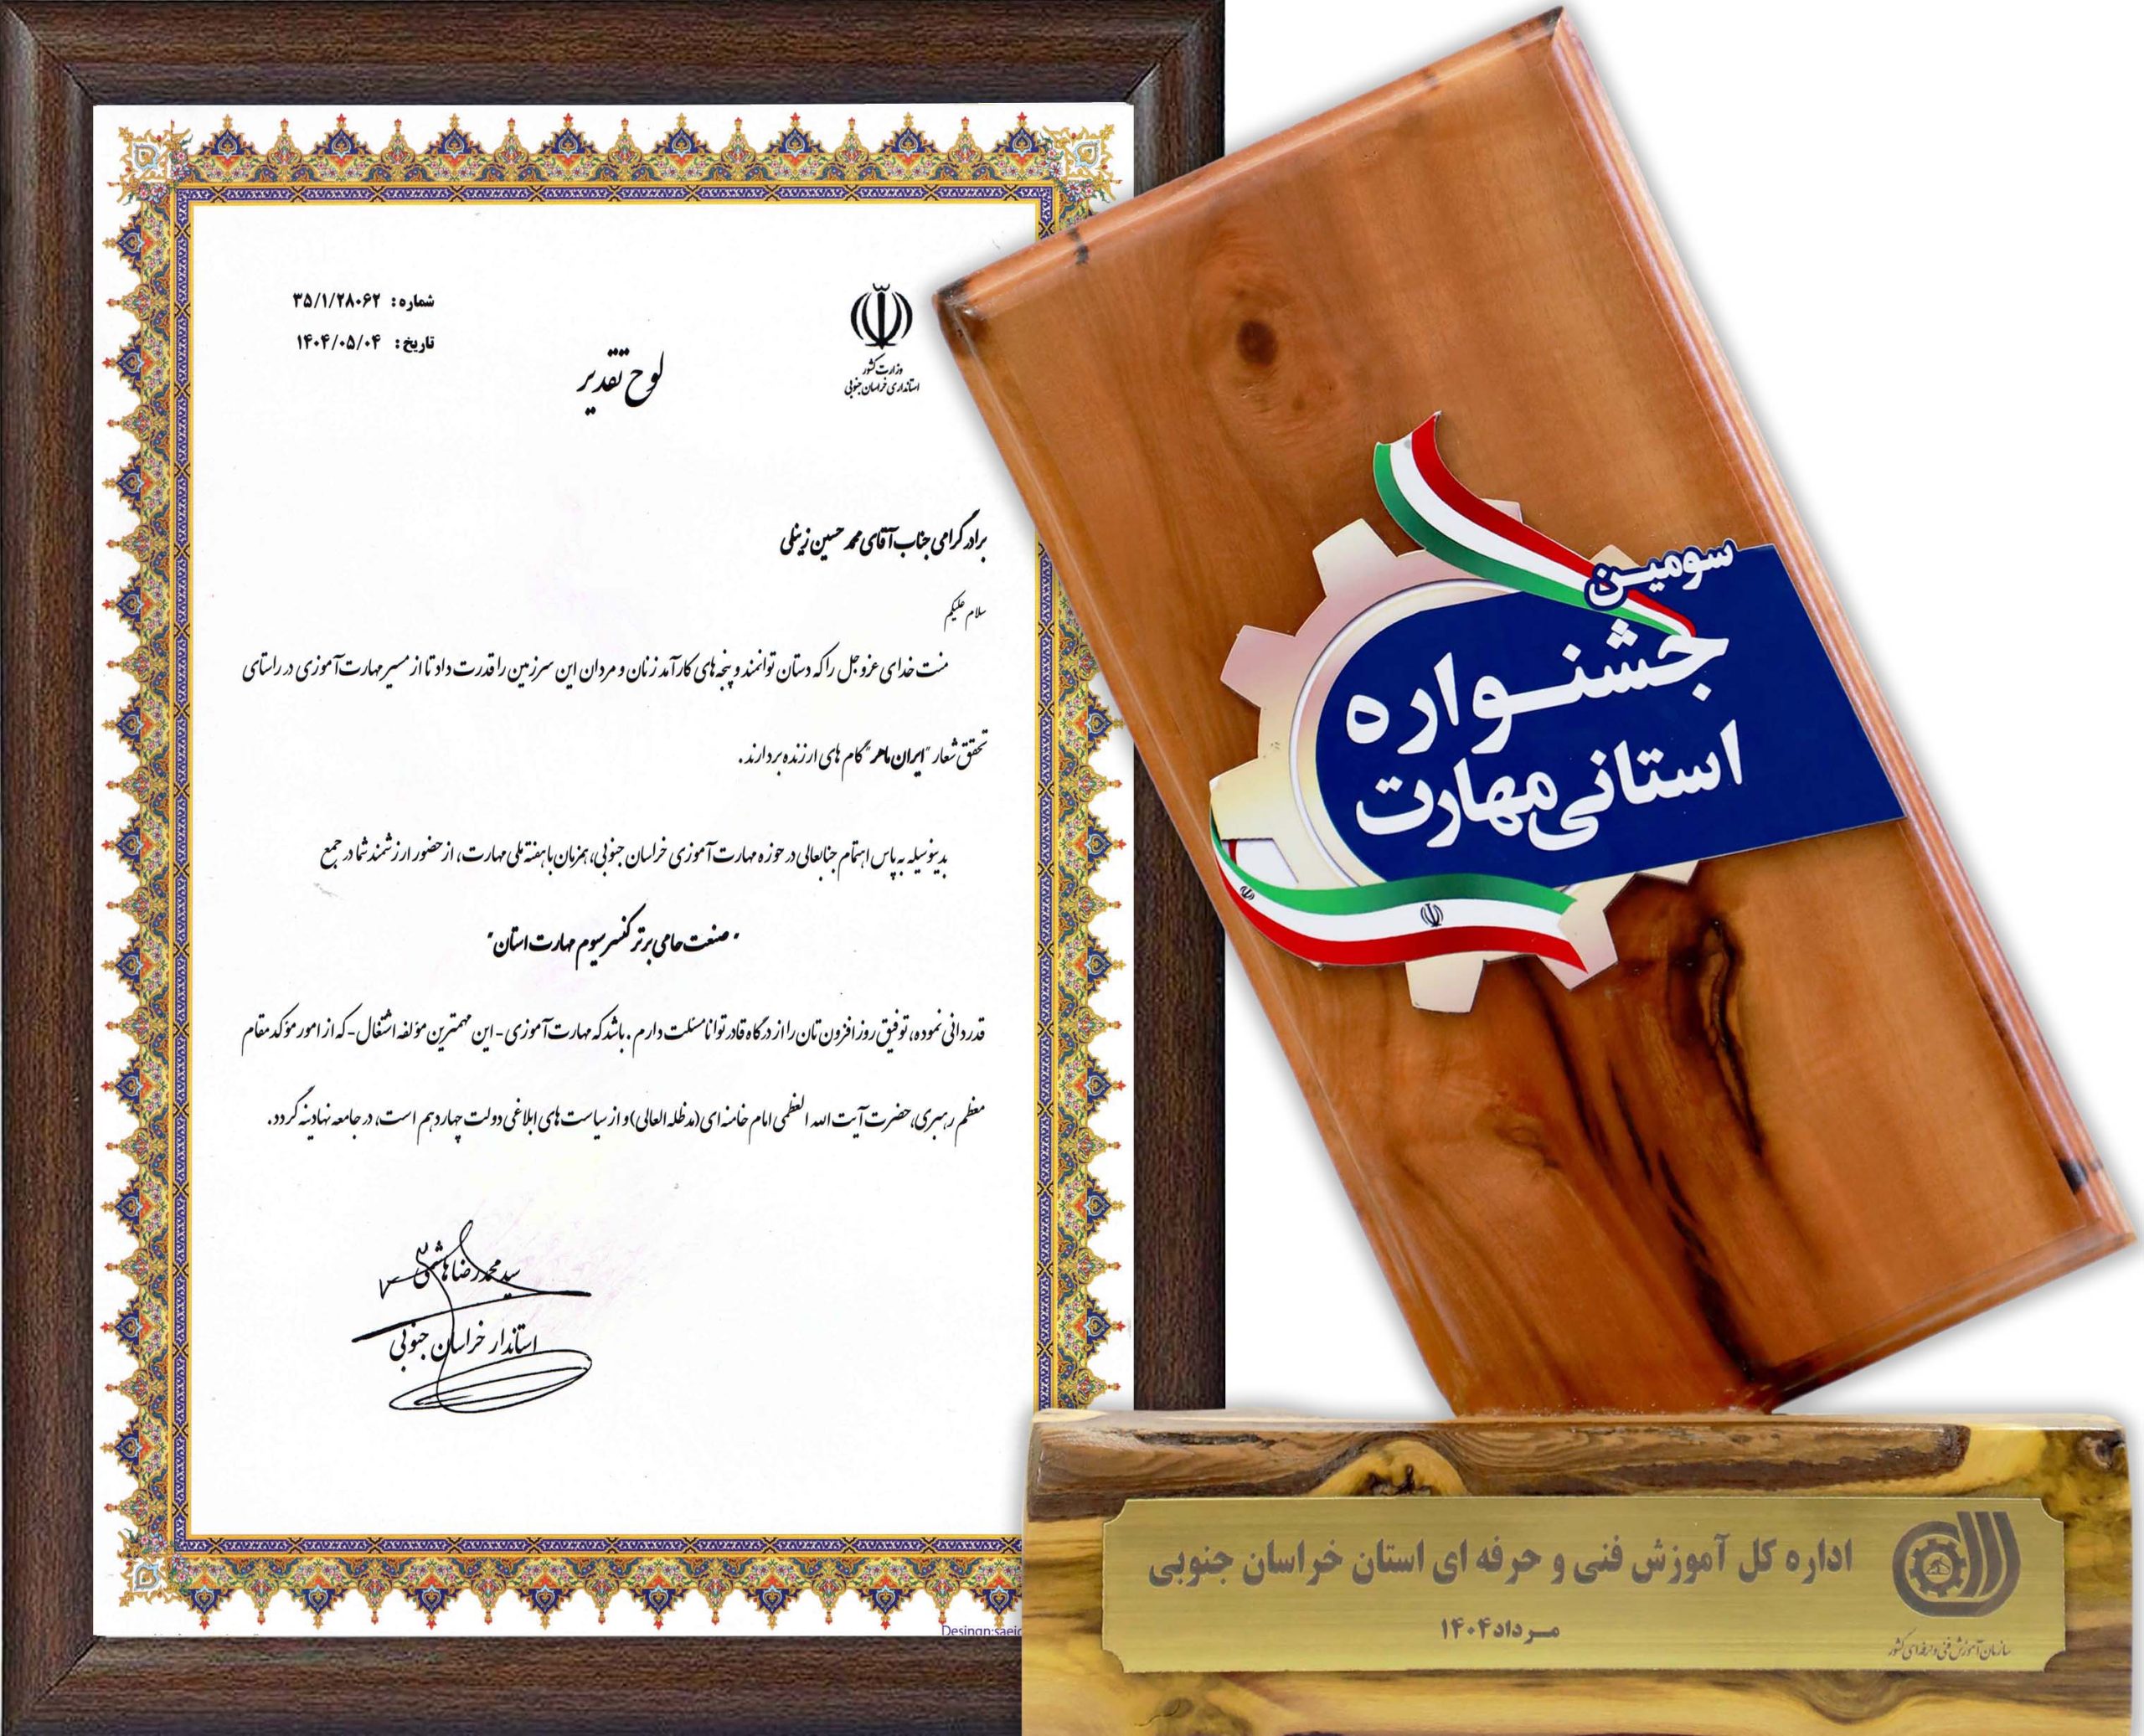 شماره: ۳۵/۱/۲۸۰۶۲
تاریخ: ۱۴۰۴/۰۵/۰۴
وزارت کشور
استانداری خراسان جنوبی
لوح تقدیر
برادر گرامی جناب آقای محمد حسین زینلی
سلام علیکم
منت خدای عزوجل را که دستان توانمند و پنجه های کارآمد زنان و مردان این سرزمین را قدرت داد تا از مسیر مهارت آموزی در راستای
تحقق شعار "ایران ماهر" گام های ارزنده بردارند.
بدینوسیله به پاس اهتمام جنابعالی در حوزه مهارت آموزی خراسان جنوبی، همزمان با هفته ملی مهارت، از حضور ارزشمند شما در جمع
"صنعت حامی برتر کنسرسیوم مهارت استان"
قدردانی نموده، توفیق روزافزون تان را از درگاه قادر توانا مسئلت دارم. باشد که مهارت آموزی - این مهمترین مؤلفه اشتغال - که از امور مؤکد مقام
معظم رهبری، حضرت آیت الله العظمی امام خامنه ای (مدظله العالی) و از سیاست های ابلاغی دولت چهاردهم است، در جامعه نهادینه گردد.
سید محمدرضا هاشمی
استاندار خراسان جنوبی
Desingn:saeid
سومین
جشنواره
استانی مهارت
اداره کل آموزش فنی و حرفه ای استان خراسان جنوبی
مرداد ۱۴۰۴
سازمان آموزش فنی و حرفه ای کشور